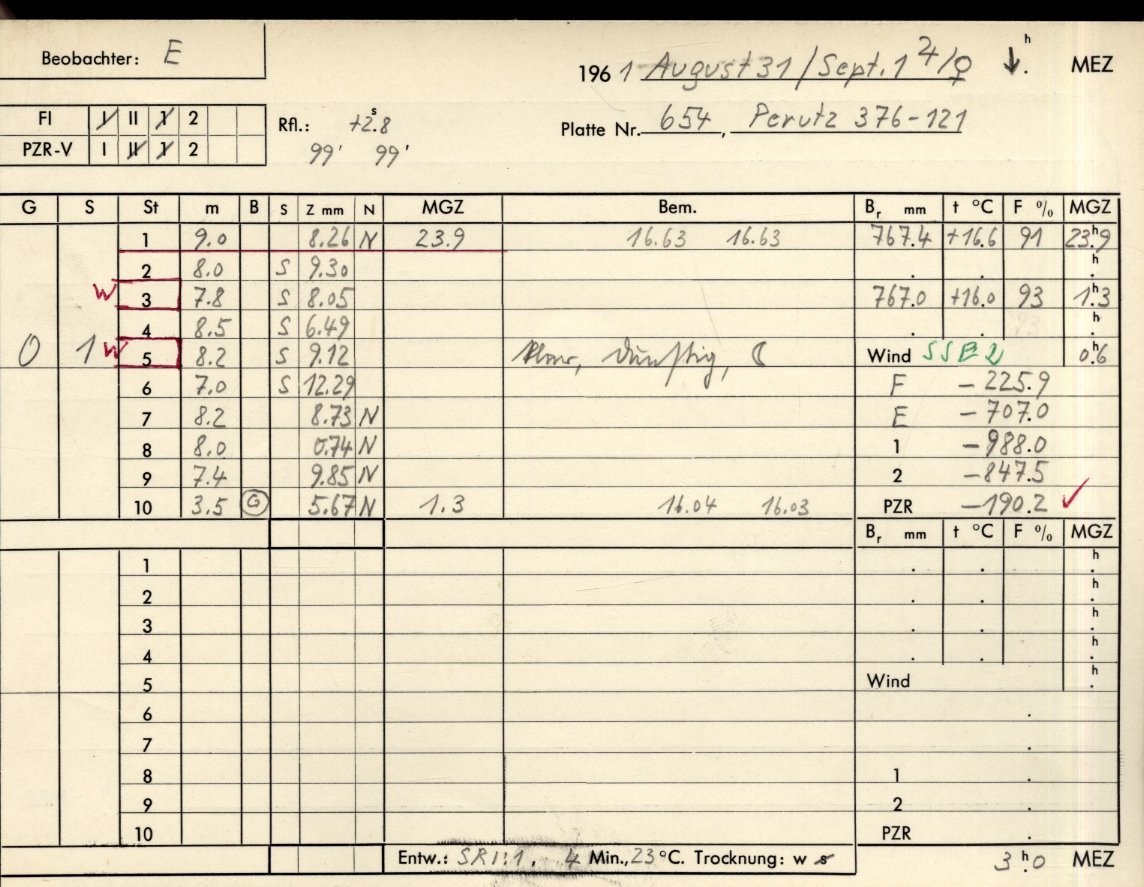 Beobachter: E
1961 August 31 / Sept. 1 ♃/♀ ↓ h. MEZ
FI I II 1 2
PZR-V I II 1 2
Rfl.: +2.8 s
99' 99'
Platte Nr. 654, Perutz 376-121
G S St m B S Z mm N MGZ Bem. Br mm t °C F % MGZ
1 9.0 8.26 N 23.9 16.63 16.63 767.4 +16.6 91 23h9
2 8.0 S 9.30 . . h.
W 3 7.8 S 8.05 767.0 +16.0 93 1h3
4 8.5 S 6.49 . . h.
0 1 W 5 8.2 S 9.12 dunstig, ☾ Wind SSE 2 0h6
6 7.0 S 12.29 F -225.9
7 8.2 8.73 N E -707.0
8 8.0 0.74 N 1 -988.0
9 7.4 9.85 N 2 -847.5
10 3.5 G 5.67 N 1.3 16.04 16.03 PZR -190.2 ✓
Br mm t °C F % MGZ
1 . . h.
2 . . h.
3 . . h.
4 . . h.
5 Wind h.
6 .
7 .
8 1 .
9 2 .
10 PZR .
Entw.: SR 1:1, 4 Min., 23 °C. Trocknung: w s 3h.0 MEZ